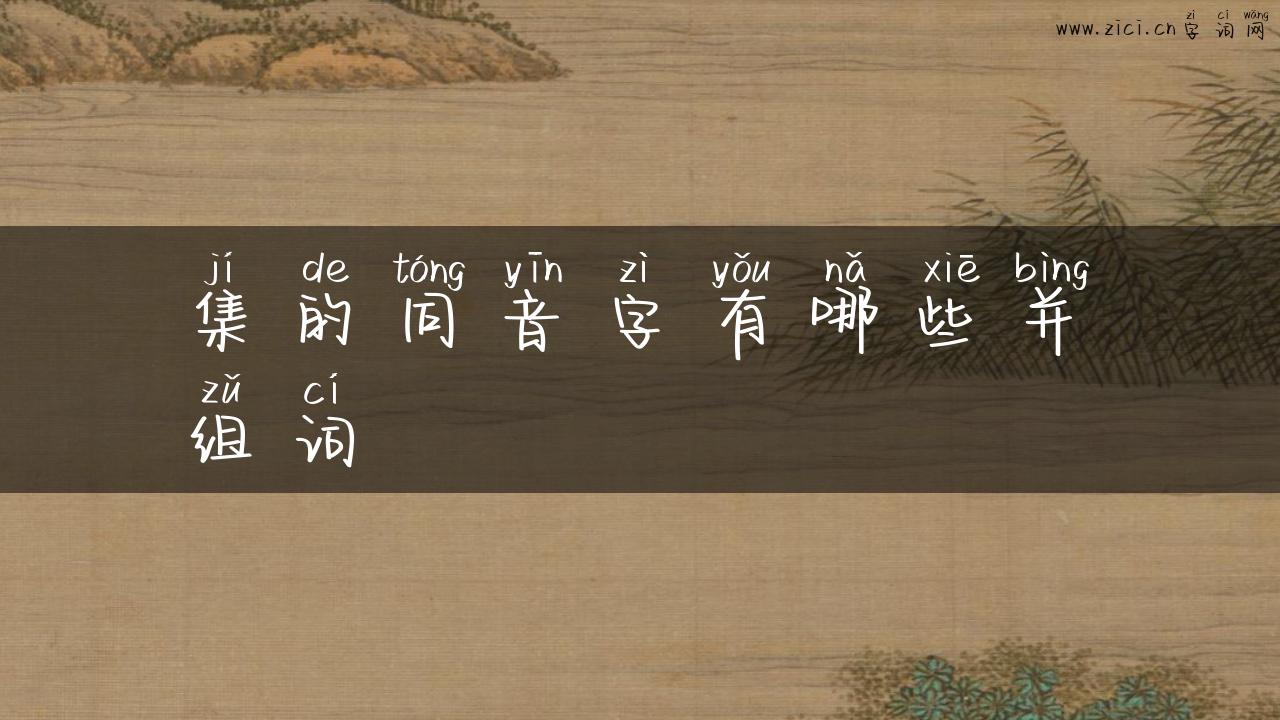 zì cí wǎng
www.zici.cn 字词网
jí de tóng yīn zì yǒu nǎ xiē bìng
集的同音字有哪些并
zǔ cí
组词